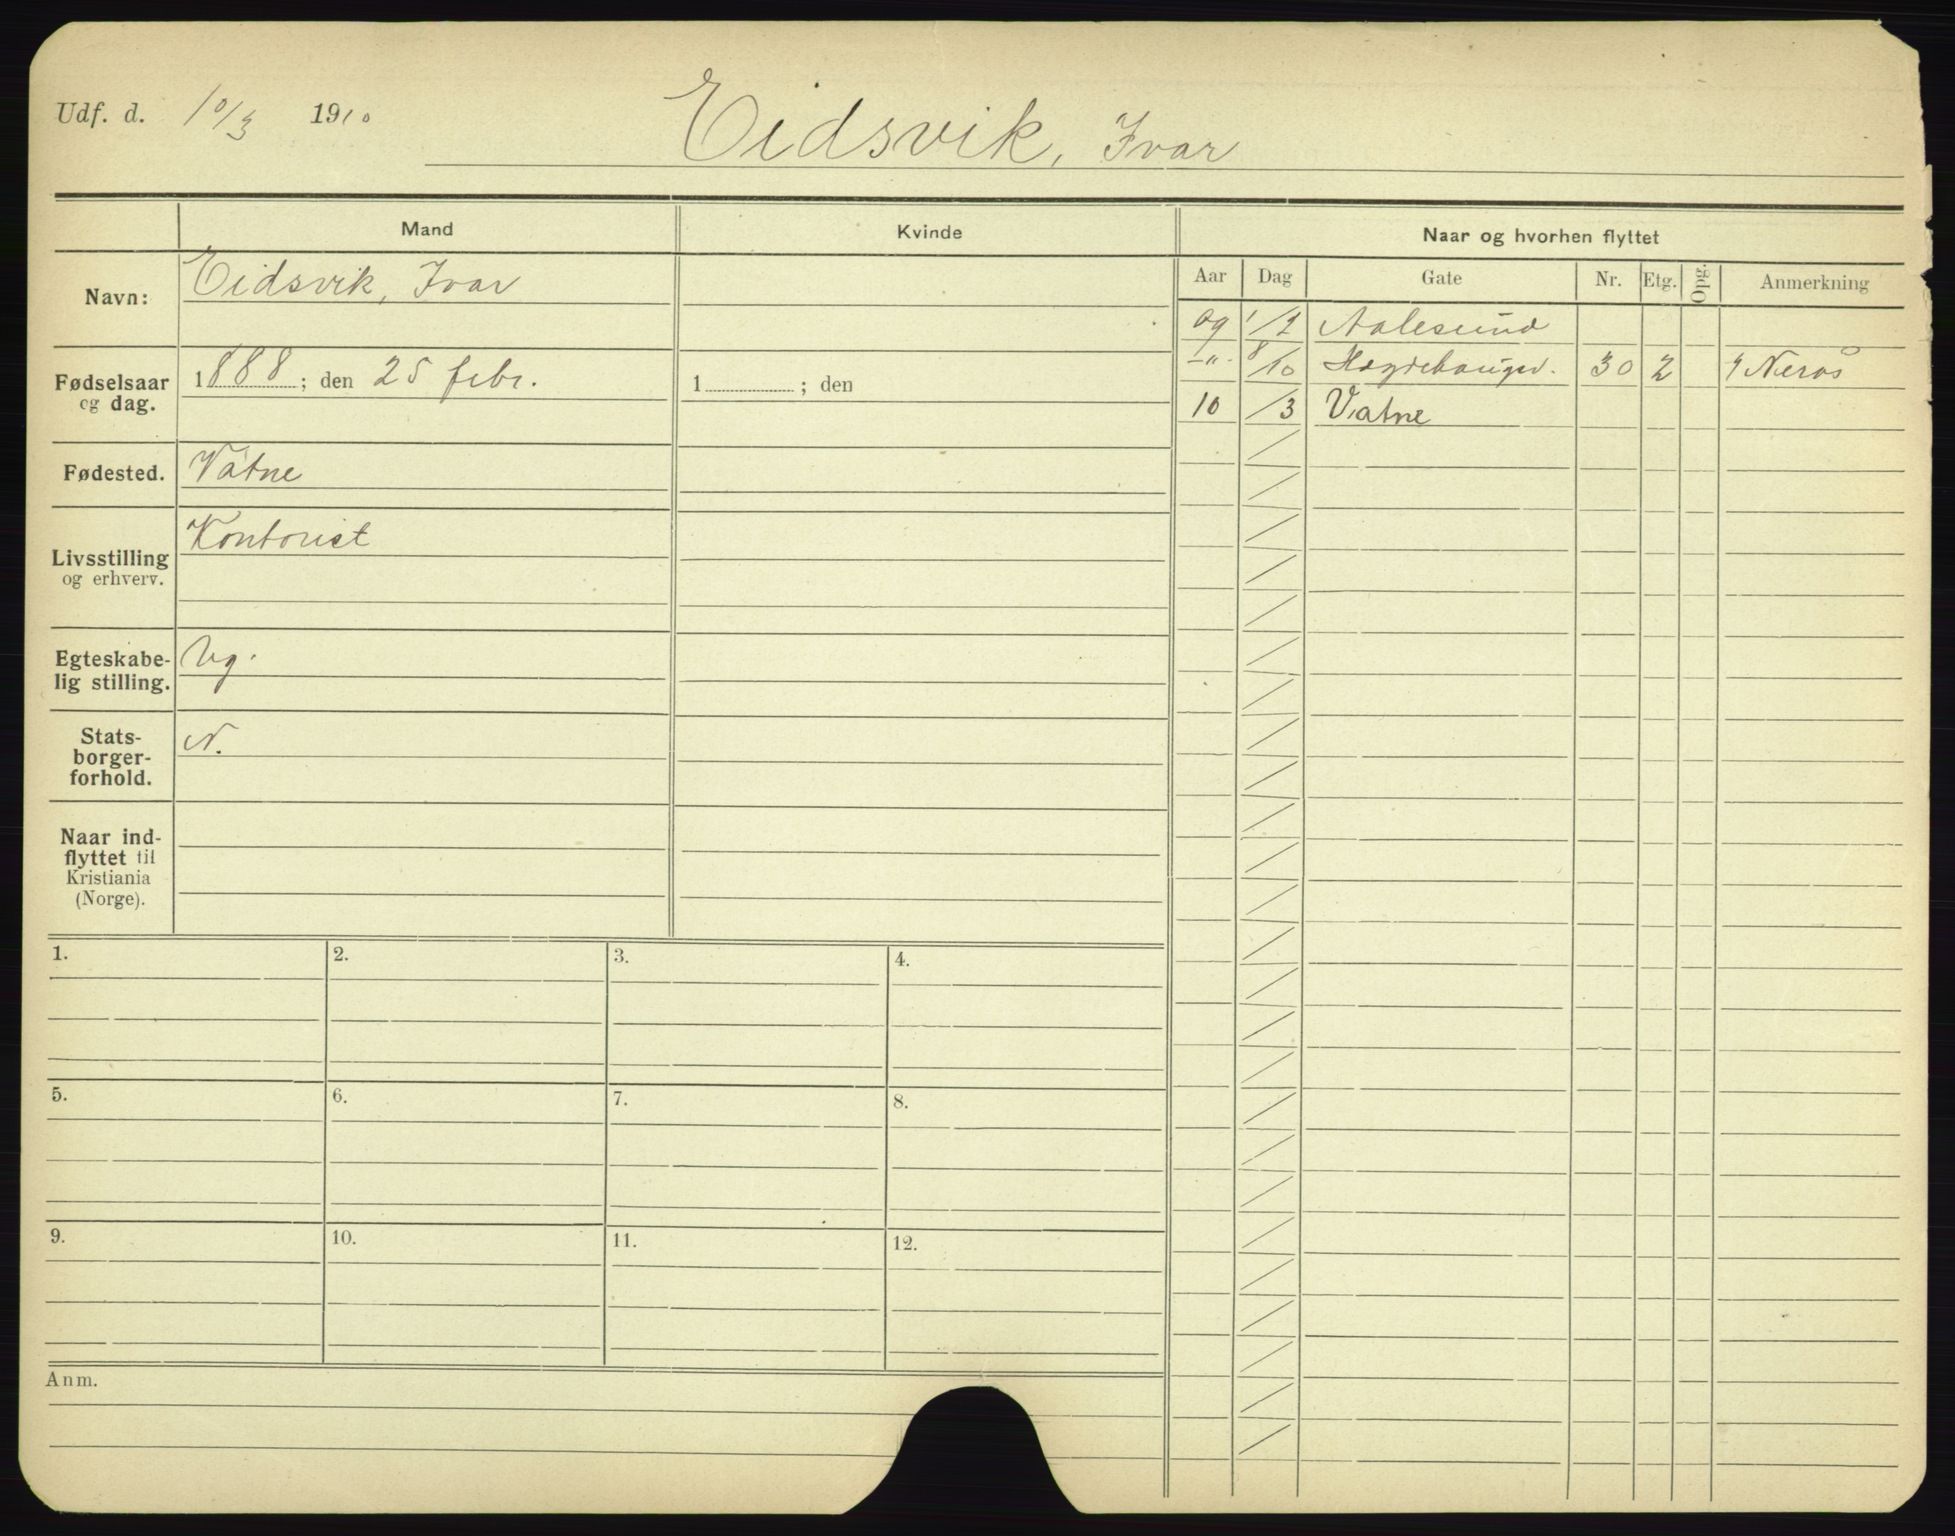 Udf. d. 10/3 1910
Eidsvik, Ivar
Mand
Kvinde
Naar og hvorhen flyttet
Navn:
Eidsvik, Ivar
Fødselsaar og dag.
1888; den 25 febr.
1 ; den
Fødested.
Vatne
Livsstilling og erhverv.
Kontorist
Egteskabelig stilling.
Ug.
Statsborgerforhold.
N.
Naar indflyttet til Kristiania (Norge).
Aar Dag Gate Nr. Etg. Opg. Anmerkning
09 1/2 Aalesund
-"- 8/10 Hægdehaugsv. 30 2 Nerås
10 /3 Vatne
1. 2. 3. 4.
5. 6. 7. 8.
9. 10. 11. 12.
Anm.